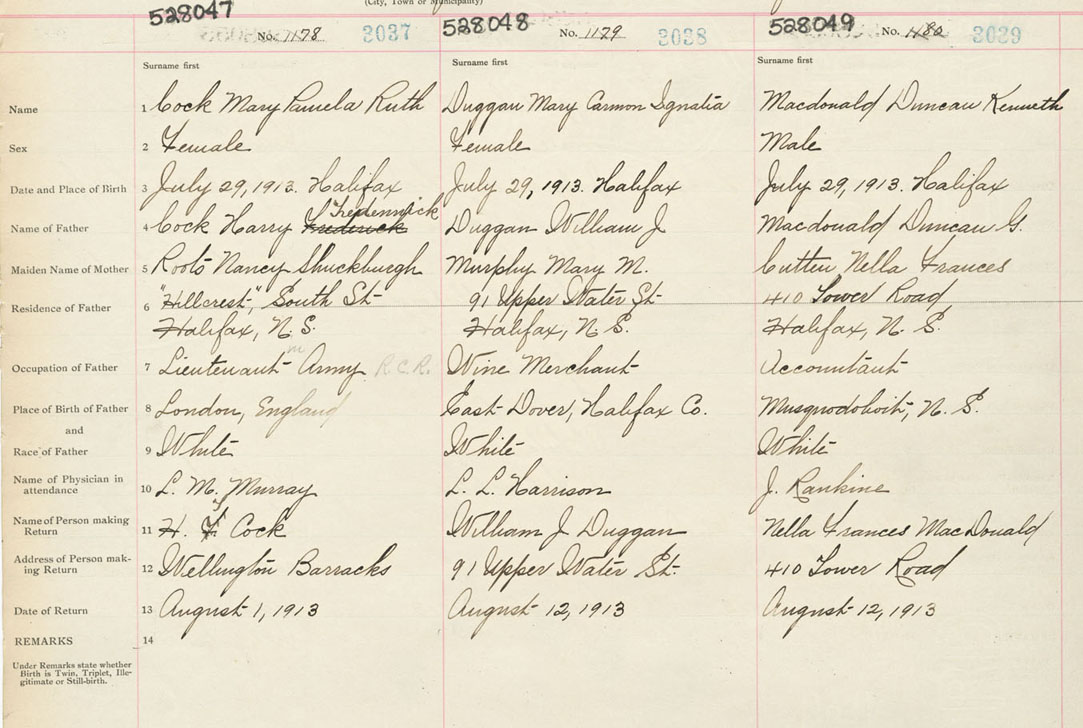 (City, Town or Municipality)
528047 528048 528049
No. 1178 3037 No. 1179 3038 No. 1180 3039
Surname first Surname first Surname first
Name 1 Cock Mary Pamela Ruth Duggan Mary Carmon Ignatia Macdonald Duncan Kenneth
Sex 2 Female Female Male
Date and Place of Birth 3 July 29, 1913. Halifax July 29, 1913. Halifax July 29, 1913. Halifax
Fredennick
Name of Father 4 Cock Harry Frederick Duggan William J Macdonald Duncan G.
Maiden Name of Mother 5 Roots Nancy Shuckburgh Murphy Mary M. Cutten Nella Frances
Residence of Father 6 "Hillcrest", South St 91 Upper Water St. 410 Tower Road
Halifax, N.S. Halifax, N.S. Halifax, N.S.
Occupation of Father 7 Lieutenant m Army R.C.R. Wine Merchant Accountant
Place of Birth of Father 8 London, England East Dover, Halifax Co. Musquodoboit, N.S.
and
Race of Father 9 White White White
Name of Physician in
attendance 10 L. M. Murray L. L. Harrison J. Rankine
Name of Person making
Return 11 H. F. Cock William J Duggan Nella Frances MacDonald
Address of Person mak-
ing Return 12 Wellington Barracks 91 Upper Water St. 410 Tower Road
Date of Return 13 August 1, 1913 August 12, 1913 August 12, 1913
REMARKS 14
Under Remarks state whether
Birth is Twin, Triplet, Ille-
gitimate or Still-birth.